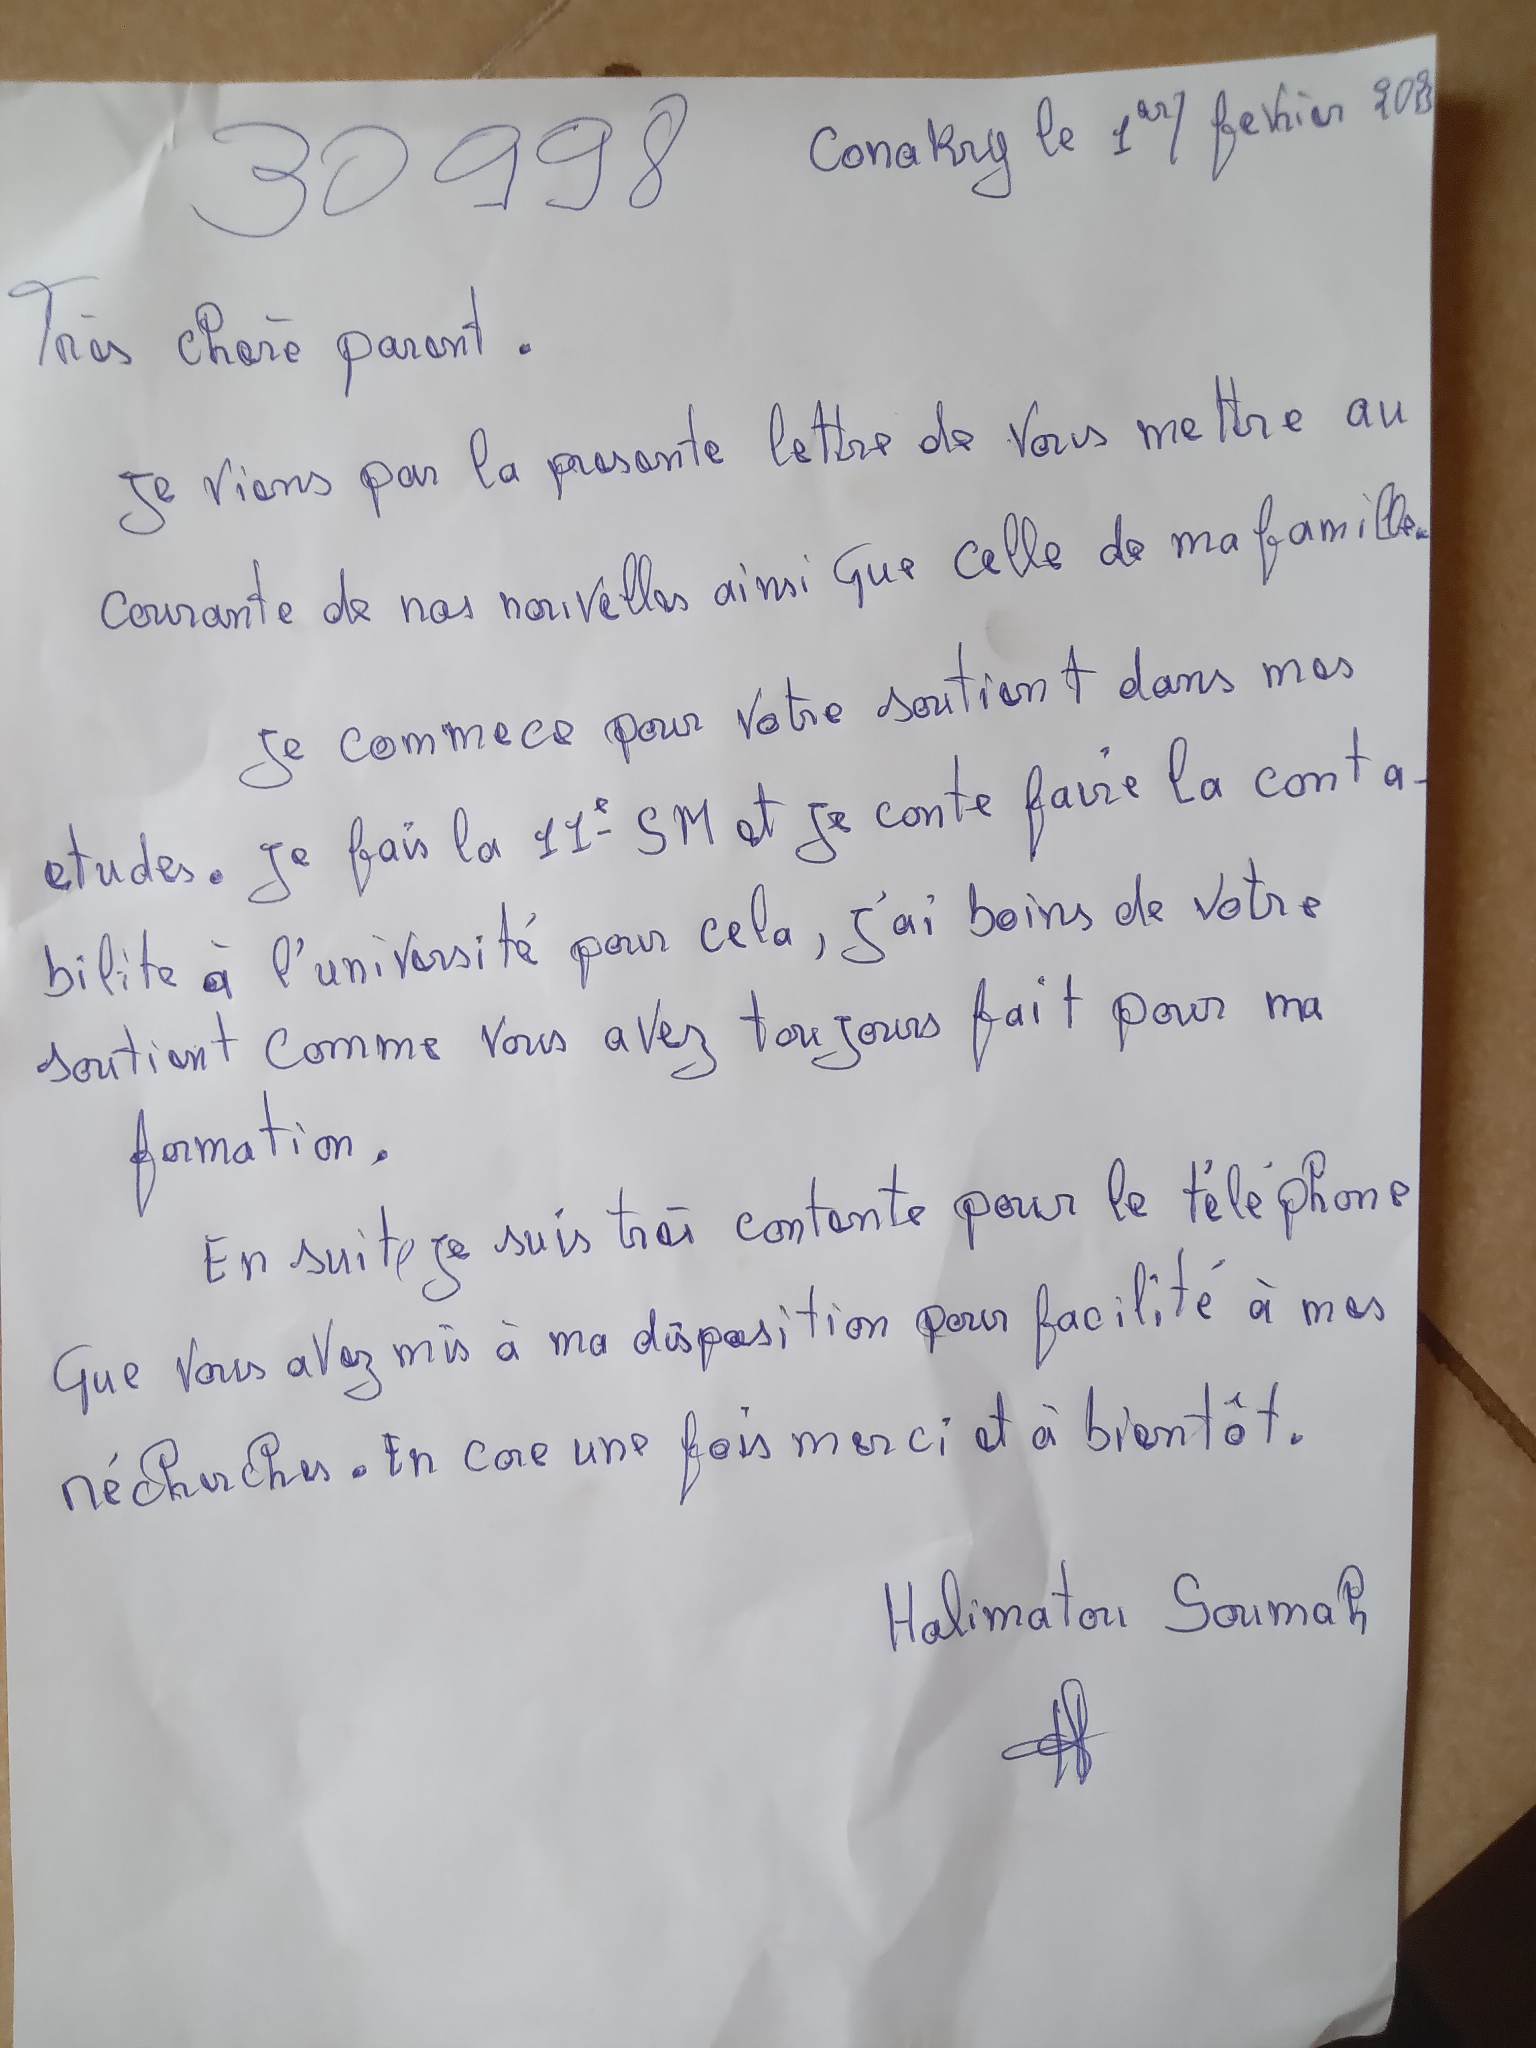 30998
Conakry le 1er/ fevrier
Très cherè parent.
Je viens par la presente lettre de vous mettre au
courante de nos nouvelles ainsi que celle de ma famille.
Je commece pour votre soutient dans mes
etudes. Je fais la 11e SM et je conte faire la conta-
bilite à l'université pour cela, j'ai boins de votre
soutient comme vous avez toujours fait pour ma
formation.
En suite je suis très contente pour le téléphone
que vous avez mis à ma disposition pour facilité à mes
récherches. En core une fois merci et à bientôt.
Halimatou Soumah